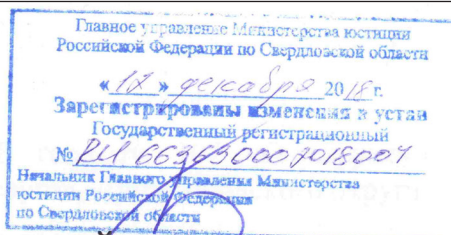 Главное управление Министерства юстиции
Российской Федерации по Свердловской области
« 17 » декабря 2018 г.
Зарегистрированы изменения в устав
Государственный регистрационный
№ RU 663630002018004
Начальник Главного управления Министерства
юстиции Российской Федерации
по Свердловской области